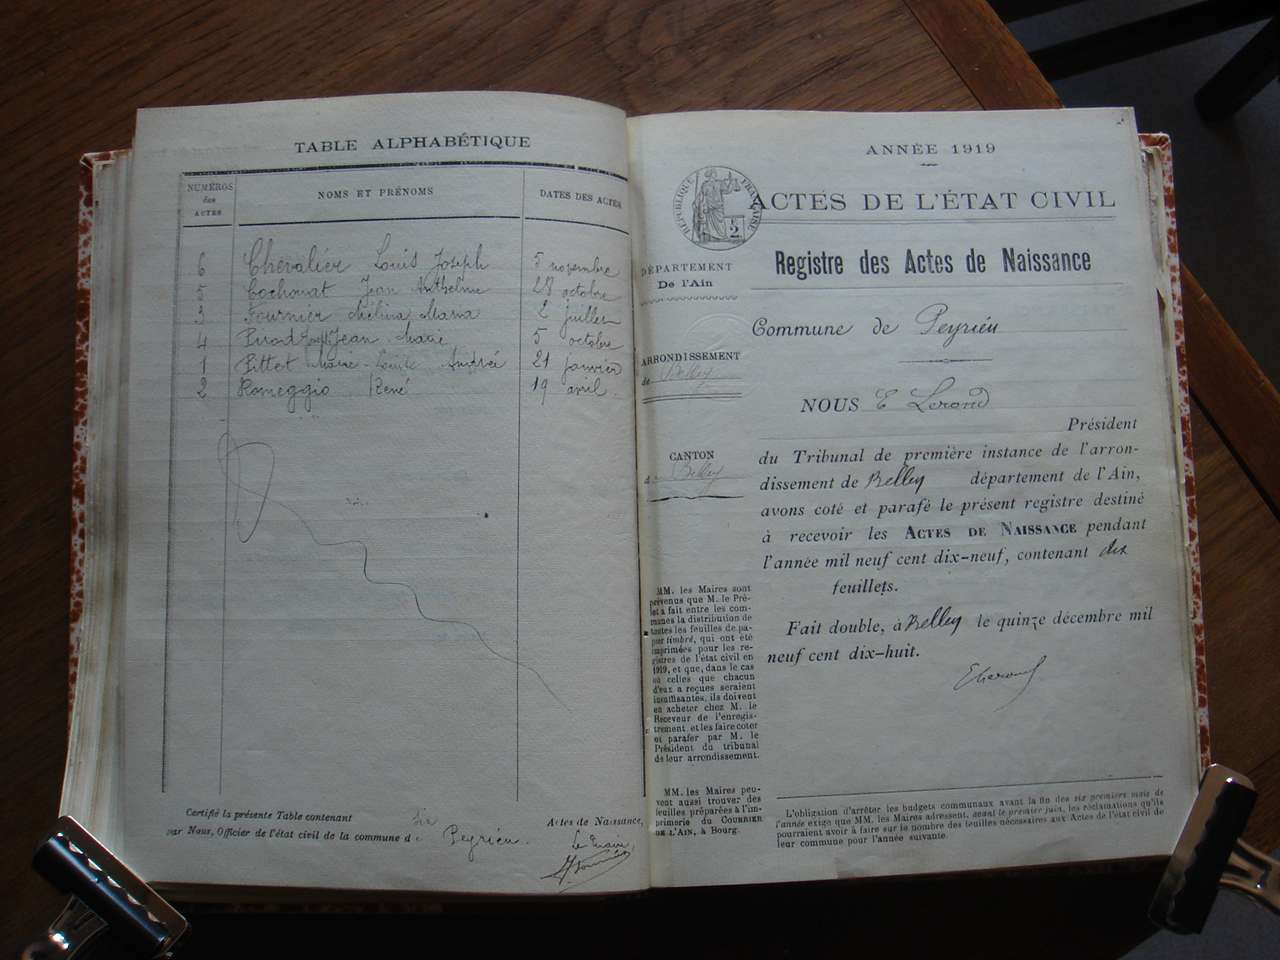 TABLE ALPHABÉTIQUE
NUMÉROS des ACTES NOMS ET PRÉNOMS DATES DES ACTES
6 Chevalier Louis Joseph 5 novembre
5 Cochonat Jean Anthelme 28 octobre
3 Fournier Mélina Maria 2 juillet
4 Jean Marie 5 octobre
1 Pittet Marie Louise Andrée 21 janvier
2 Romeggio René 19 avril.
Certifié la présente Table contenant six Actes de Naissance,
par Nous, Officier de l'état civil de la commune d Peyrieu.
Le Maire
ANNÉE 1919
RÉPUBLIQUE FRANÇAISE
2
ACTES DE L'ÉTAT CIVIL
Registre des Actes de Naissance
DÉPARTEMENT
De l'Ain
Commune de Peyrieu
ARRONDISSEMENT
de Belley
CANTON
d Belley
NOUS E Lerond
Président
du Tribunal de première instance de l'arron-
dissement de Belley département de l'Ain,
avons coté et parafé le présent registre destiné
à recevoir les ACTES DE NAISSANCE pendant
l'année mil neuf cent dix-neuf, contenant dix
feuillets.
Fait double, à Belley le quinze décembre mil
neuf cent dix-huit.
ELerond
MM. les Maires sont
prévenus que M. le Pré-
fet a fait entre les com-
munes la distribution de
toutes les feuilles de pa-
pier timbré, qui ont été
imprimées pour les re-
gistres de l'état civil en
1919, et que, dans le cas
où celles que chacun
d'eux a reçues seraient
insuffisantes, ils doivent
en acheter chez M. le
Receveur de l'enregis-
trement et les faire coter
et parafer par M. le
Président du tribunal
de leur arrondissement.
MM. les Maires peu-
vent aussi trouver des
feuilles préparées à l'im-
primerie du COURRIER
DE L'AIN, à Bourg.
L'obligation d'arrêter les budgets communaux avant la fin des six premiers mois de
l'année exige que MM. les Maires adressent, avant le premier juin, les réclamations qu'ils
pourraient avoir à faire sur le nombre des feuilles nécessaires aux Actes de l'état civil de
leur commune pour l'année suivante.